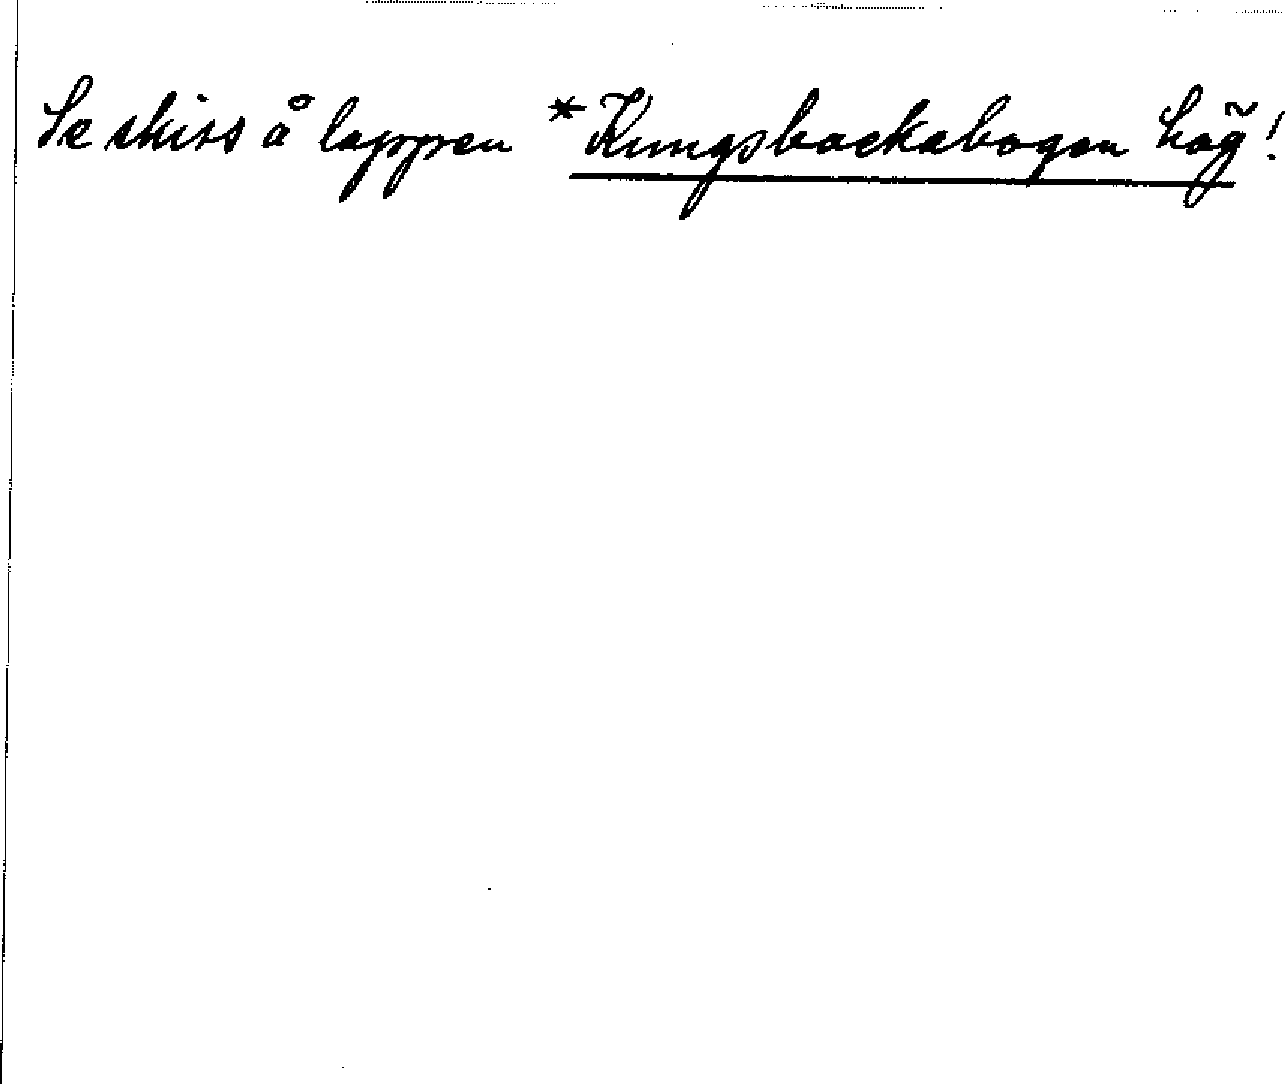 Se skiss å lappen *Kungsbackabogen hög!